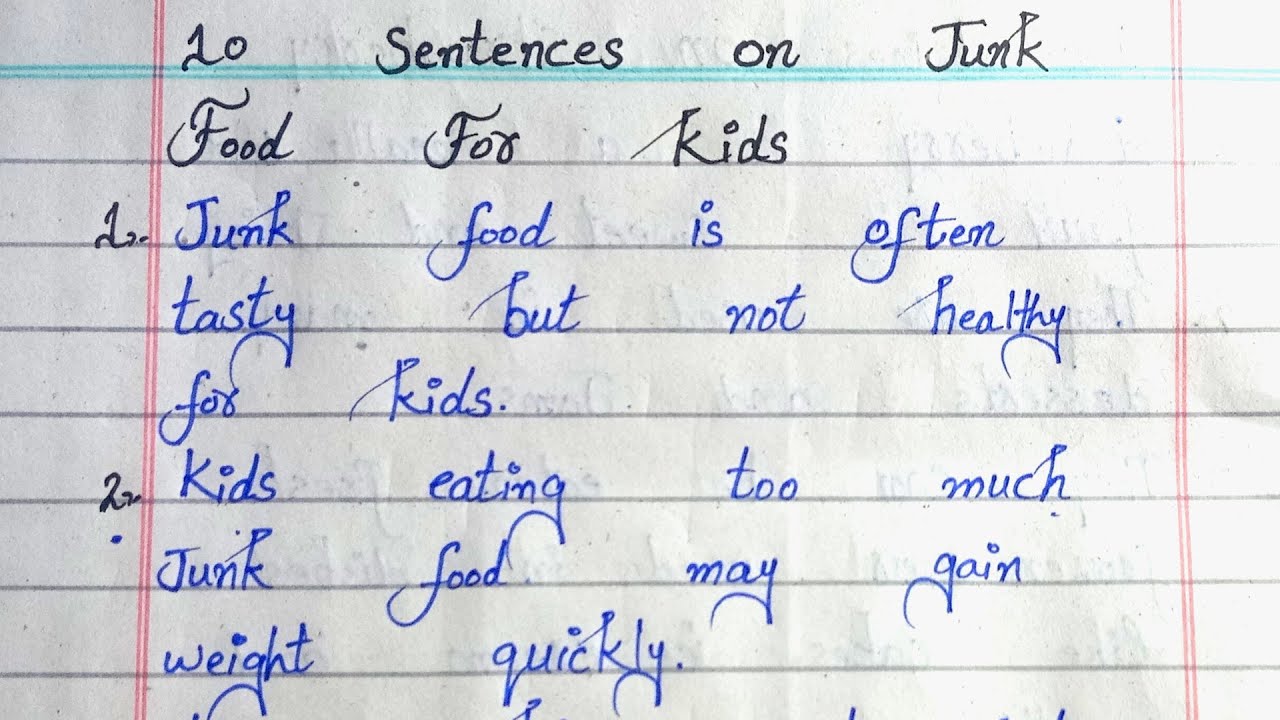 10 Sentences on Junk
Food For Kids
1. Junk food is often
tasty but not healthy
for kids.
2. Kids eating too much
Junk food may gain
weight quickly.